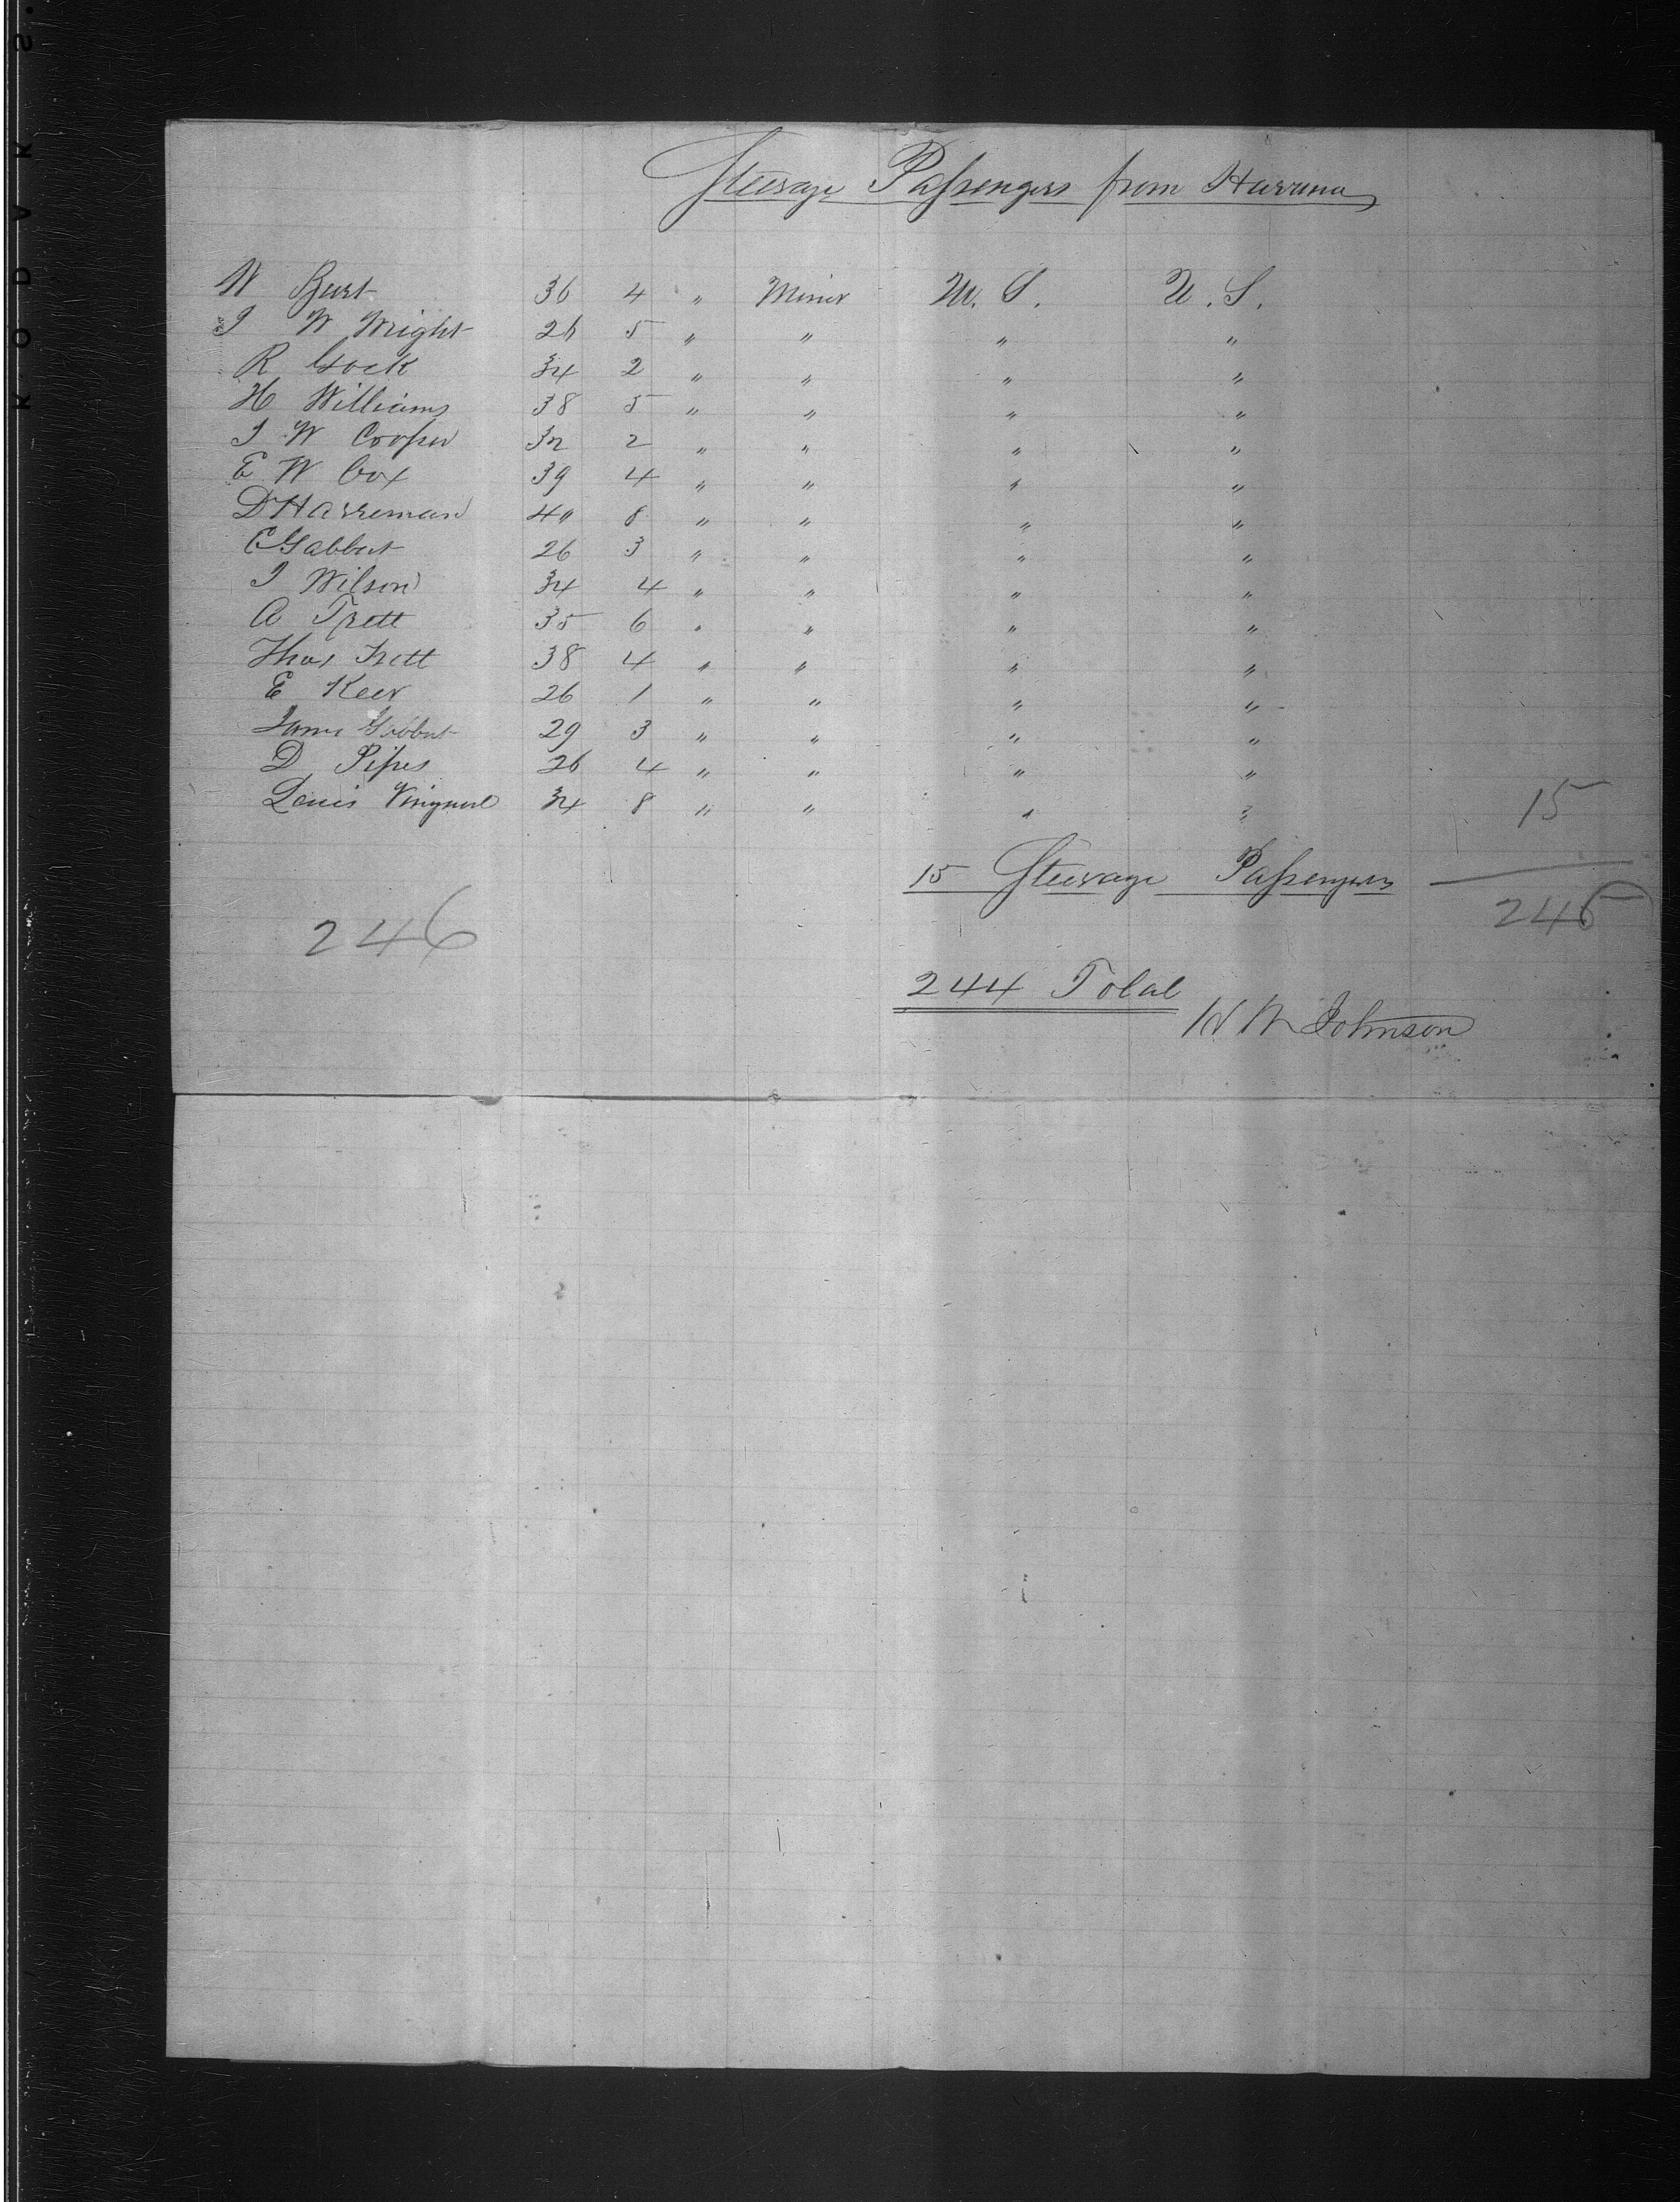 Steerage Passengers from Havana
W Burt 36 4 " Miner U. S. U. S.
J W Wright 26 5 " " " "
R Gock 34 2 " " " "
H Williams 38 5 " " " "
J W Cooper 32 2 " " " "
E W Cox 39 4 " " " "
D Harreman 40 8 " " " "
C Gabbert 26 3 " " " "
J Wilson 34 4 " " " "
A Trett 35 6 " " " "
Thos Trett 38 4 " " " "
E Keer 26 1 " " " "
James Gibbert 29 3 " " " "
D Pipes 26 4 " " " "
Louis 34 8 " " " "
15
15 Steerage Passengers
246
246
244 Total
W Johnson
KODVK S.